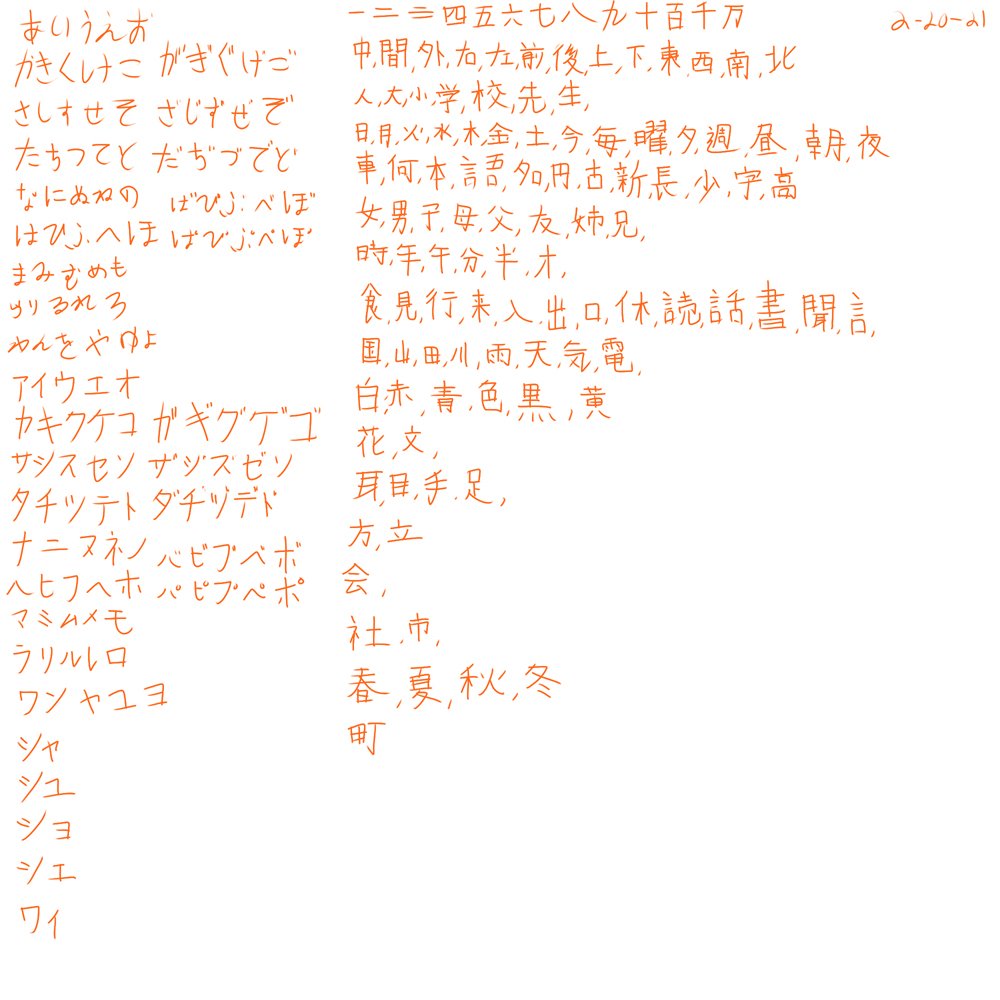 あいうえお
かきくけこ がぎぐげご
さしすせそ ざじずぜぞ
たちつてと だぢづでど
なにぬねの ばびぶべぼ
はひふへほ ぱぴぷぺぽ
まみむめも
りるれろ
わんをやゆよ
アイウエオ
カキクケコ ガギグゲゴ
サシスセソ ザジズゼソ
タチツテト ダヂヅデド
ナニヌネノ バビブベボ
ヘヒフヘホ パピプペポ
マミムメモ
ラリルレロ
ワンヤユヨ
シャ
シュ
ショ
シェ
ワィ
一二三四五六七八九十百千万
2-20-21
中,間,外,右,左,前,後,上,下,東,西,南,北
人,大,小,学,校,先,生,
日,月,火,水,木,金,土,今,毎,曜,夕,週,昼,朝,夜
車,何,本,語,名,円,古,新,長,少,字,高
女,男,子,母,父,友,姉,兄,
時,年,午,分,半,才,
食,見,行,来,入,出,口,休,読,話,書,聞,言,
国,山,田,川,雨,天,気,電,
白,赤,青,色,黒,黄
花,文,
耳,目,手,足,
方,立
会,
社,市,
春,夏,秋,冬
町